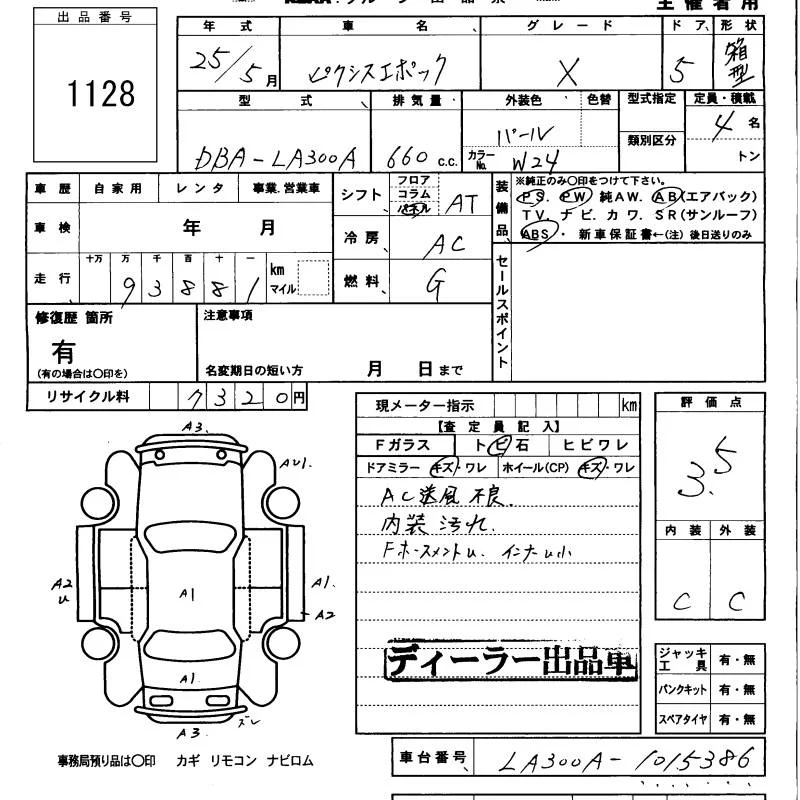 出品番号
1128
年式 車名 グレード ドア 形状
25/5月 ピクシスエポック X 5 箱型
型式 排気量 外装色 色替 型式指定 定員・積載
DBA-LA300A 660 c.c. パール 類別区分 4名
カラーNo. W24 トン
車歴 自家用 レンタ 事業.営業車
車検 年 月
走行 十万 万 千 百 十 一
93881 km マイル
シフト フロア コラム パネル AT
冷房 AC
燃料 G
装備品
※純正のみ○印をつけて下さい。
PS. PW 純AW. AB(エアバック)
TV. ナビ. カワ. SR(サンルーフ)
ABS・ 新車保証書←(注)後日送りのみ
セールスポイント
修復歴 箇所
有
(有の場合は○印を)
注意事項
名変期日の短い方 月 日まで
リサイクル料 7320円
現メーター指示 km
【査定員記入】
Fガラス トビ石 ヒビワレ
ドアミラー キズ・ワレ ホイール(CP) キズ・ワレ
AC送風不良.
内装汚れ.
Fホースメントu. インナu小
ディーラー出品車
評価点
3.5
内装 外装
C C
ジャッキ工具 有・無
パンクキット 有・無
スペアタイヤ 有・無
A3.
AU1.
A2
u
A1
A1.
A2
A1.
ズレ
A3
事務局預り品は○印 カギ リモコン ナビロム
車台番号 LA300A-1015386